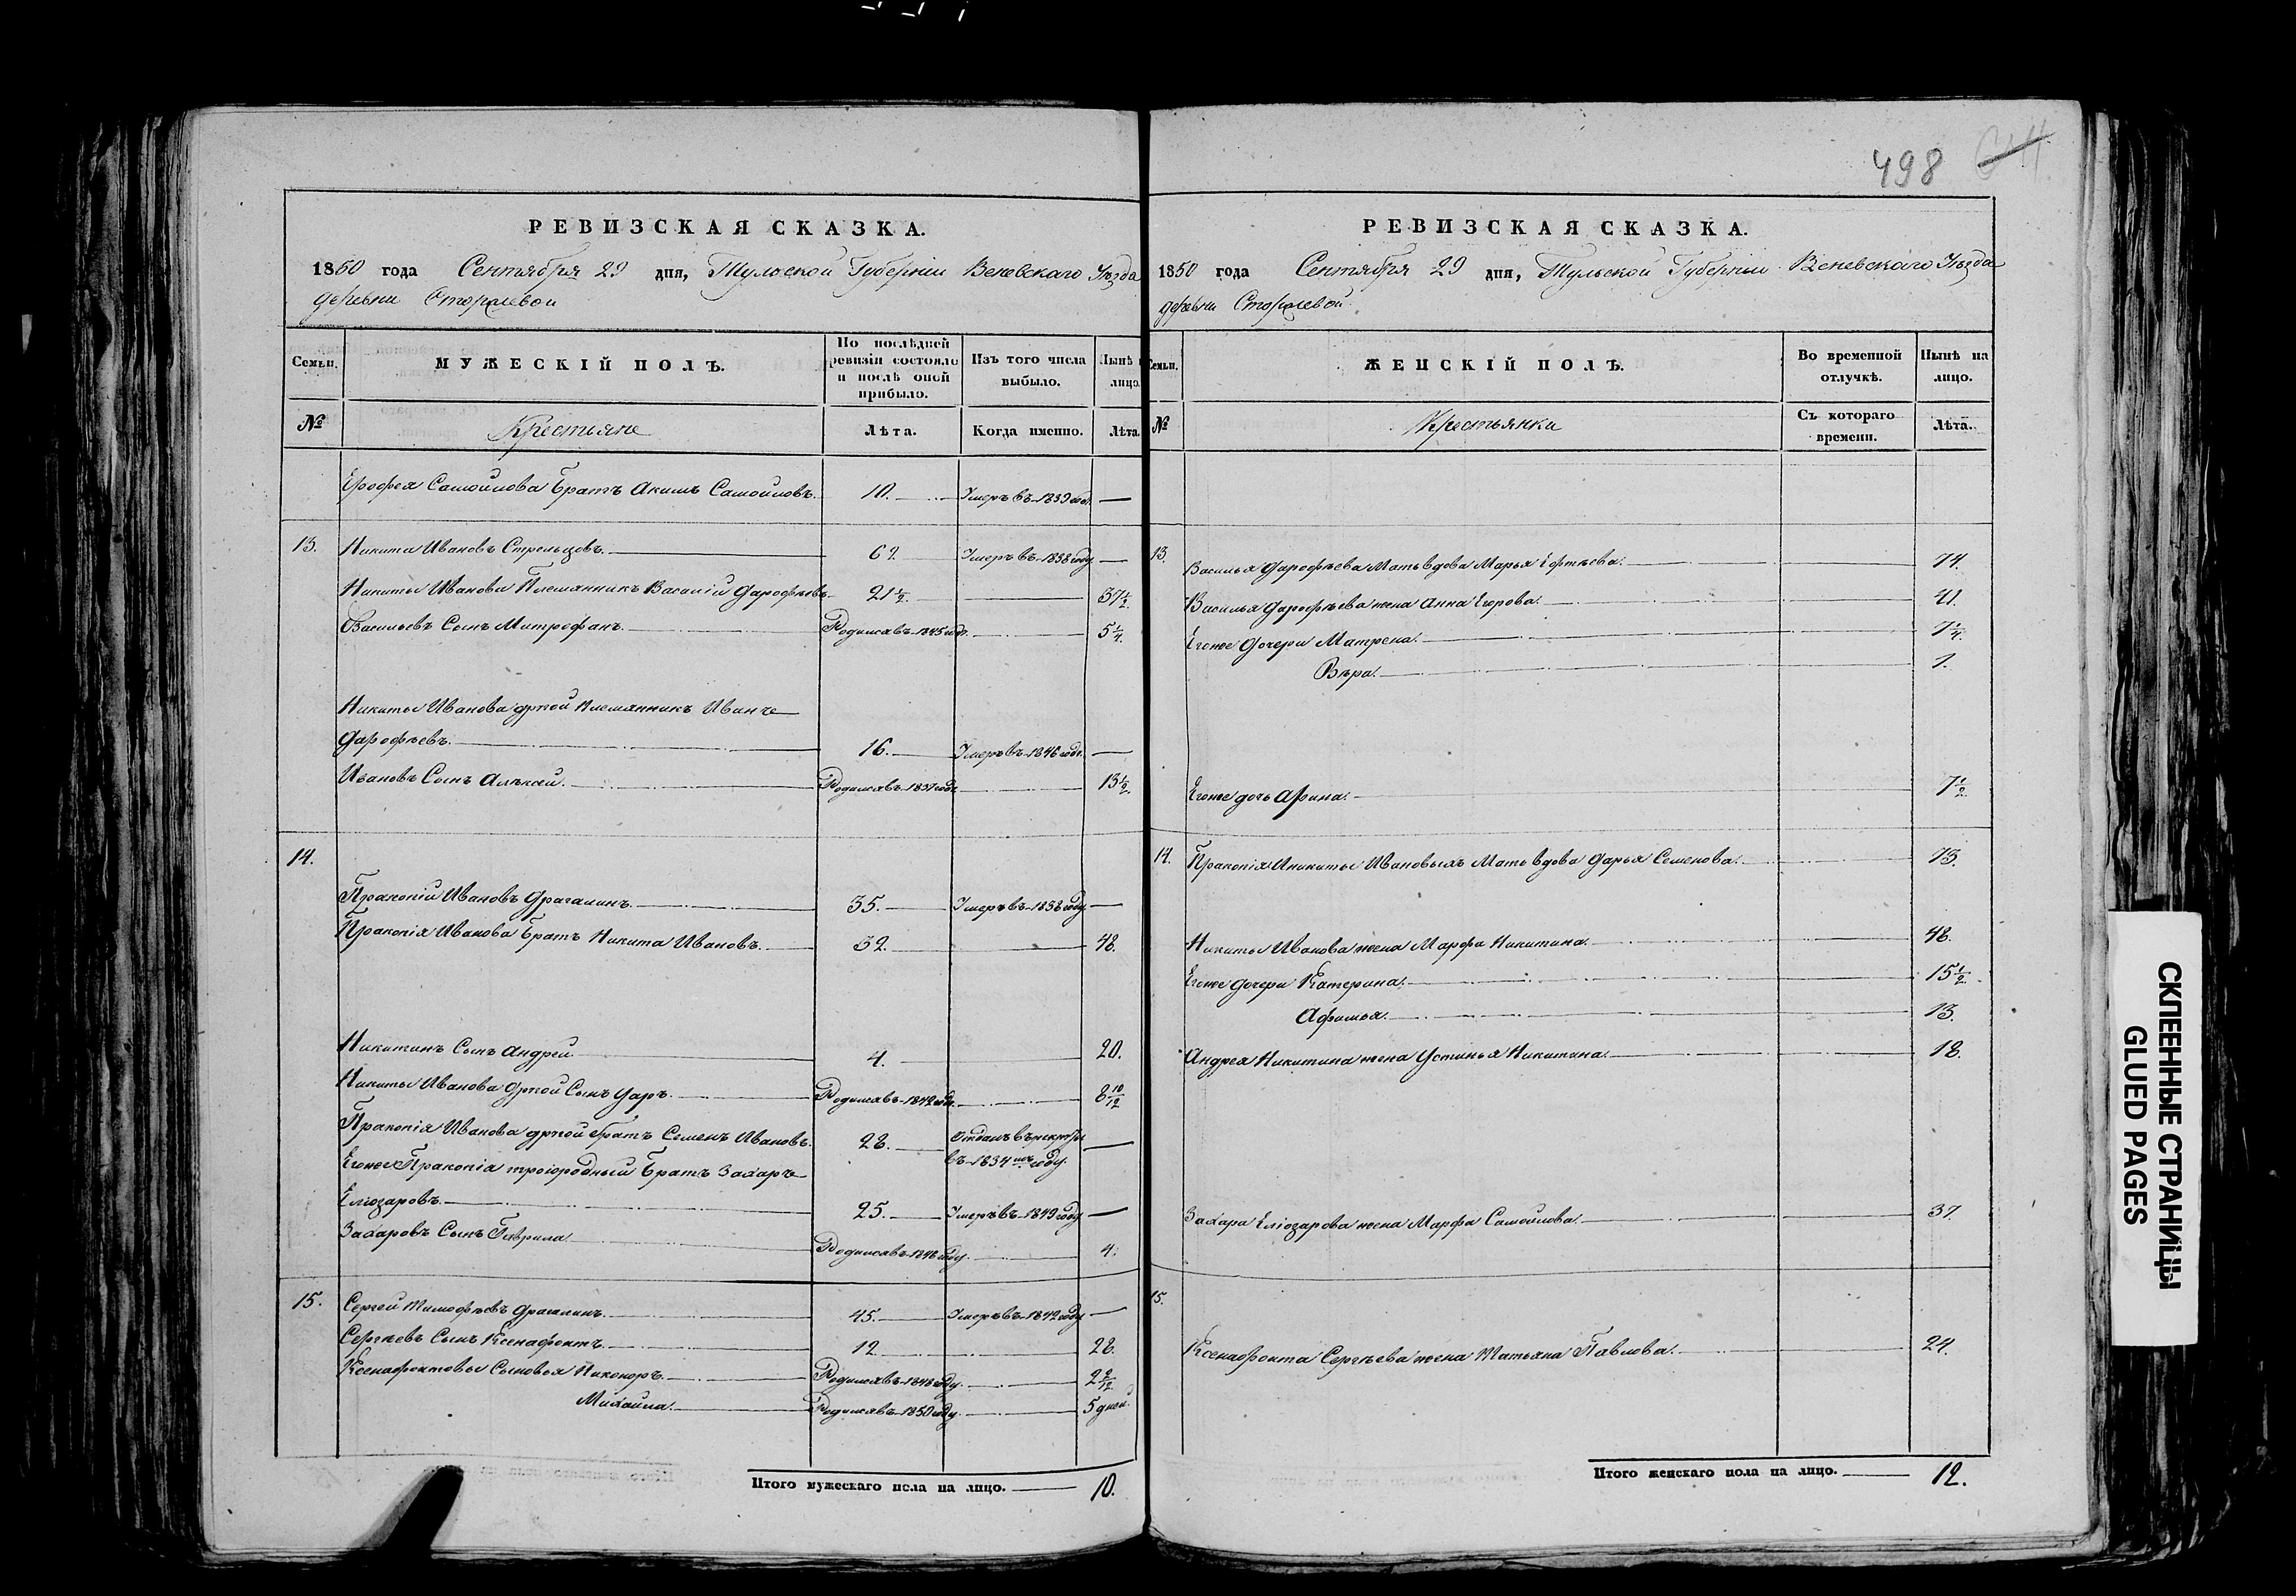 498
РЕВИЗСКАЯ СКАЗКА.
1850 года Сентября 29 дня, Тульской Губерніи Веневскаго Уѣзда
деревни Сторожевой
Семьи.
МУЖЕСКІЙ ПОЛЪ.
По послѣдней ревизіи состояло и послѣ оной прибыло.
Изъ того числа выбыло.
Нынѣ на лицо.
№
Крестьяне
Лѣта.
Когда именно.
Лѣта.
Ерофея Самойлова братъ Акимъ Самойловъ. 10. Умеръ въ 1839 год.
13. Никита Ивановъ Стрельцовъ. 62. Умеръ въ 1838 году
Никиты Иванова Племянникъ Василій Дарофѣевъ 21 1/2. 37 1/2.
Васильевъ Сынъ Митрофанъ. Родился въ 1845 годе. 5 1/4.
Никиты Иванова другой племянникъ Иванъ
Дарофѣевъ. 16. Умеръ въ 1846 годе.
Ивановъ Сынъ Алѣксей. Родился въ 1837 годе 13 1/2.
14.
Пракопій Ивановъ Драгалинъ. 35. Умеръ въ 1838 году
Пракопія Иванова братъ Никита Ивановъ. 32. 48.
Никитинъ Сынъ Андрей 4. 20.
Никиты Иванова другой Сынъ Уаръ. Родился въ 1842 годе. 8 10/12
Пракопія Иванова другой братъ Семенъ Ивановъ. 28. Отданъ въ рекруты
въ 1834 мъ году.
Егоже Пракопія троюродный братъ Захаръ
Еліозаровъ. 25. Умеръ въ 1849 году
Захаровъ Сынъ Гаврила Родился въ 1846 году. 4.
15. Сергей Тимофѣевъ Драгалинъ. 45. Умеръ въ 1842 году
Сергѣевъ Сынъ Ксенафонтъ. 12 28.
Ксенафонтовы Сыновья Никоноръ. Родился въ 1848 году.
Михаила. Родился въ 1850 году. 5 дней.
Итого мужескаго пола на лицо. 10.
РЕВИЗСКАЯ СКАЗКА.
1850 года Сентября 29 дня, Тульской Губерніи Веневскаго Уѣзда
деревни Сторожевой.
Семьи.
ЖЕНСКІЙ ПОЛЪ.
Во временной отлучкѣ.
Нынѣ на лицо.
№
Крестьянки
Съ котораго времени.
Лѣта.
13. Василья Дарофѣева Мать вдова Марья Ефтѣева. 74.
Василья Дарофѣева жена Анна Егорова. 41.
Егоже Дочери Матрена. 7 1/4.
Вѣра. 1.
Егоже дочь Арина. 7 1/2.
14. Пракопія Иникиты Ивановыхъ Мать вдова Дарья Семенова. 75.
Никиты Иванова жена Марфа Никитина. 48.
Егоже Дочери Катерина. 15 1/2.
Афимья. 13.
Андрея Никитина жена Устинья Никитина. 18.
Захара Еліозарова жена Марфа Самойлова. 37.
15.
Ксенафонта Сергѣева жена Татьяна Павлова. 24.
Итого женскаго пола на лицо. 12.
СКЛЕЕННЫЕ СТРАНИЦЫ
GLUED PAGES